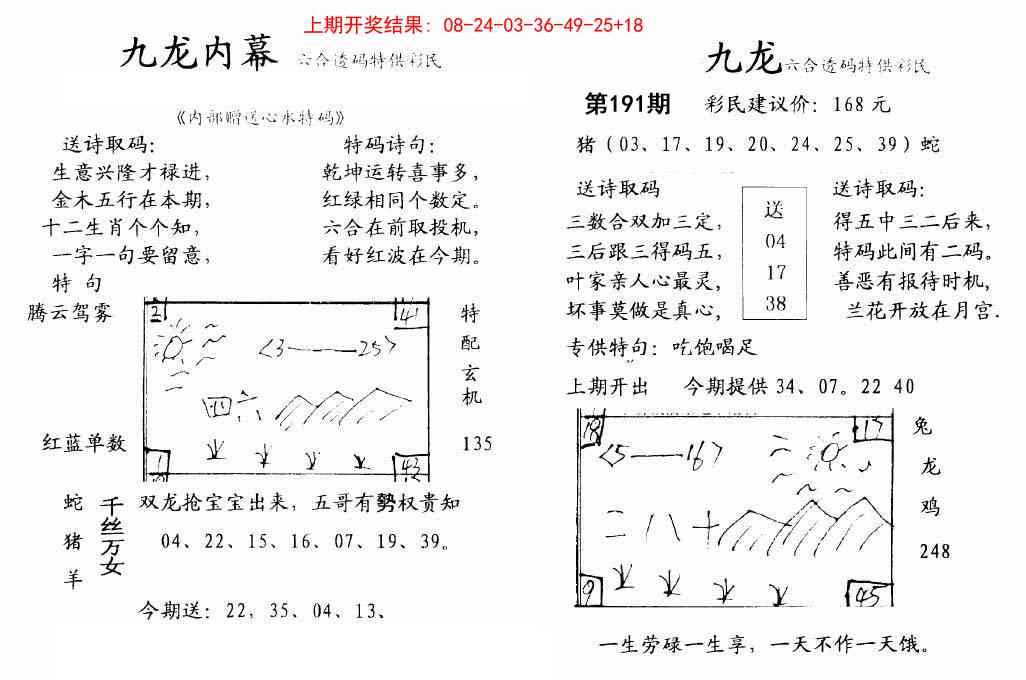 上期开奖结果：08-24-03-36-49-25+18
九龙内幕 六合透码特供彩民
《内部赠送心水特码》
送诗取码：
生意兴隆才禄进，
金木五行在本期，
十二生肖个个知，
一字一句要留意，
特码诗句：
乾坤运转喜事多，
红绿相同个数定。
六合在前取投机，
看好红波在今期。
特 句
腾云驾雾
红蓝单数
21
41
<3——25>
四六
1
43
特
配
玄
机
135
蛇
猪
羊
千
丝
万
女
双龙抢宝宝出来，五哥有勢权贵知
04、22、15、16、07、19、39。
今期送：22，35、04、13、
九龙 六合透码特供彩民
第191期 彩民建议价：168元
猪（03、17、19、20、24、25、39）蛇
送诗取码
三数合双加三定，
三后跟三得码五，
叶家亲人心最灵，
坏事莫做是真心，
送
04
17
38
送诗取码：
得五中三二后来，
特码此间有二码。
善恶有报待时机，
兰花开放在月宫.
专供特句：吃饱喝足
上期开出 今期提供 34、07。22 40
18
17
<5——16>
二八十
9
45
兔
龙
鸡
248
一生劳碌一生享，一天不作一天饿。